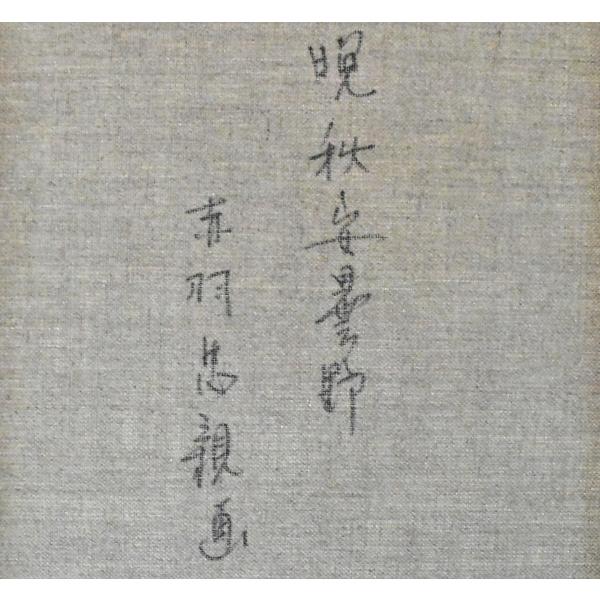 晩秋安曇野
赤羽忠親画